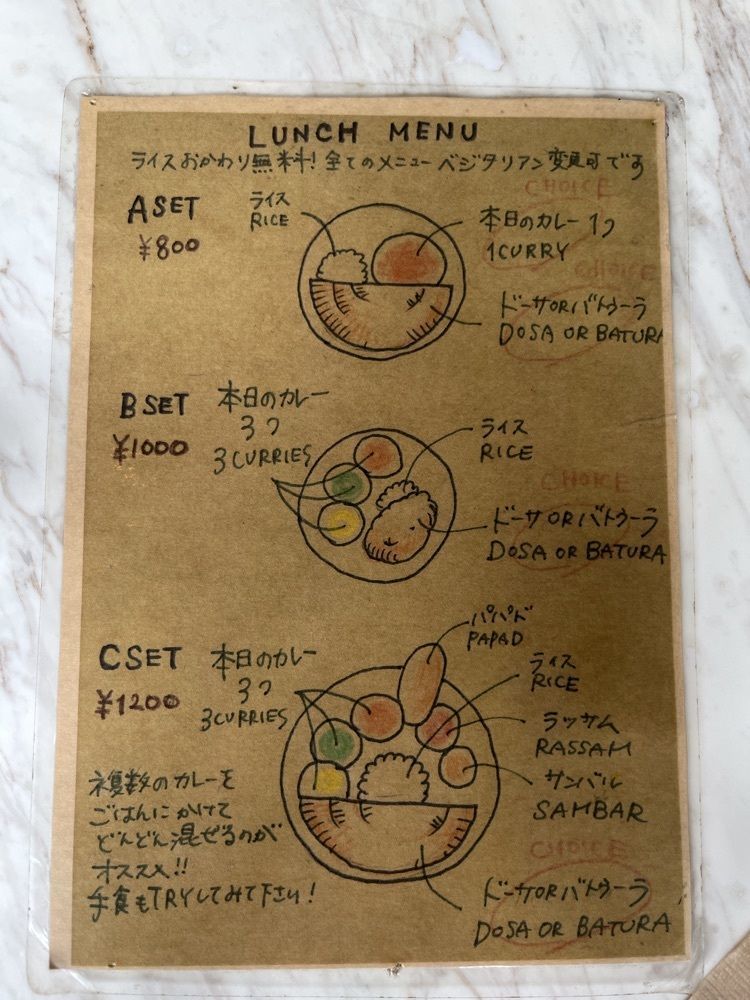 LUNCH MENU
ライスおかわり無料!全てのメニューベジタリアン変更可です
A SET
¥800
ライス
RICE
CHOICE
本日のカレー 1つ
1 CURRY
CHOICE
ドーサORバトゥーラ
DOSA OR BATURA
B SET
¥1000
本日のカレー
3つ
3 CURRIES
ライス
RICE
CHOICE
ドーサORバトゥーラ
DOSA OR BATURA
C SET
¥1200
本日のカレー
3つ
3 CURRIES
パパド
PAPAD
ライス
RICE
ラッサム
RASSAM
サンバル
SAMBAR
複数のカレーを
ごはんにかけて
どんどん混ぜるのが
オススメ!!
手食もTRYしてみて下さい!
CHOICE
ドーサORバトゥーラ
DOSA OR BATURA